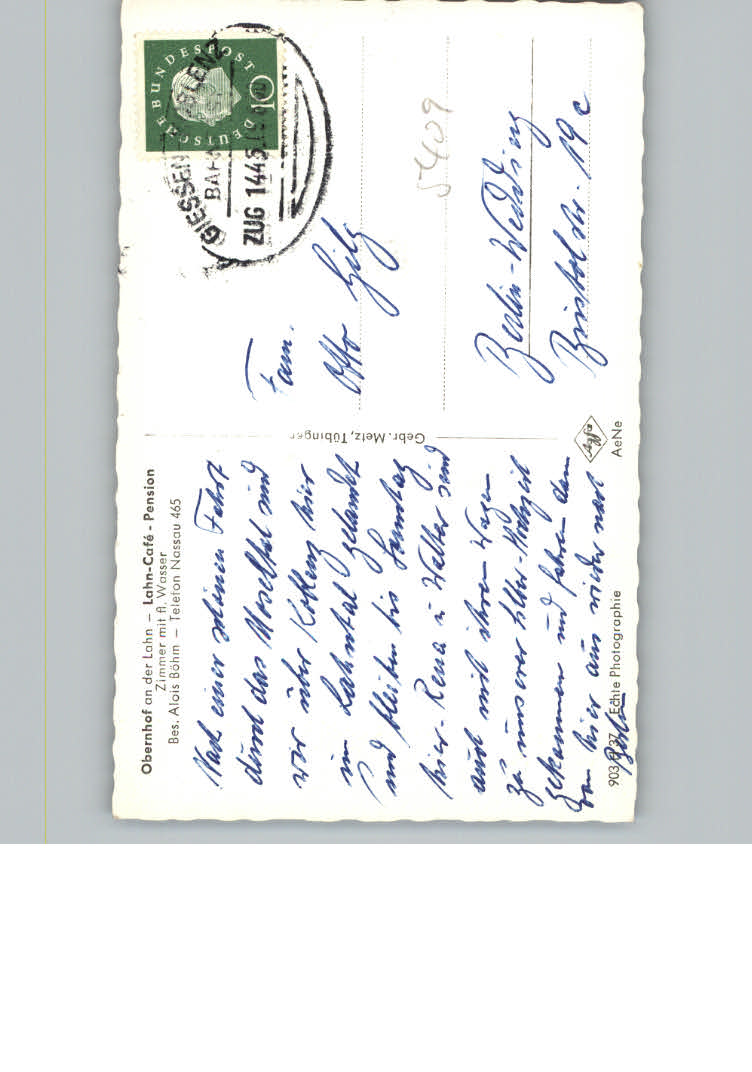 Obernhof an der Lahn – Lahn-Café - Pension
Zimmer mit fl. Wasser
Bes. Alois Böhm – Telefon Nassau 465
Nach einer schönen Fahrt
durch das Moseltal sind
wir über Koblenz hier
im Lahntal gelandet
und bleiben bis Samstag
hier. Rena u Walter sind
auch mit ihrem Wagen
zu unserer Silber-Hochzeit
gekommen und fahren dann
von hier aus wieder nach
Berlin
903 37 Echte Photographie
Gebr. Metz, Tübingen
Agfa
AeNe
DEUTSCHE BUNDESPOST
10
GIESSEN KOBLENZ
BAHN
ZUG 1445
5409
Fam.
Otto
Berlin-Wedding
Bristolstr. 19c